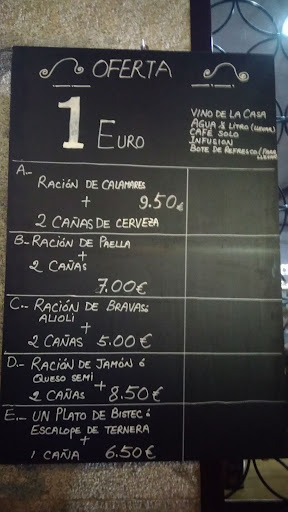 OFERTA
1 EURO
VINO DE LA CASA
AGUA ½ LITRO (LLEVAR)
CAFE SOLO
INFUSION
BOTE DE REFRESCO (PARA LLEVAR)
A.-
RACIÓN DE CALAMARES
+ 9.50€
2 CAÑAS DE CERVEZA
B.- RACIÓN DE PAELLA
+
2 CAÑAS
7.00€
C.- RACIÓN DE BRAVAS ó
ALIOLI
+
2 CAÑAS 5.00€
D.- RACIÓN DE JAMÓN ó
QUESO SEMI
+
2 CAÑAS 8.50€
E.- UN PLATO DE BISTEC ó
ESCALOPE DE TERNERA
+
1 CAÑA 6.50€